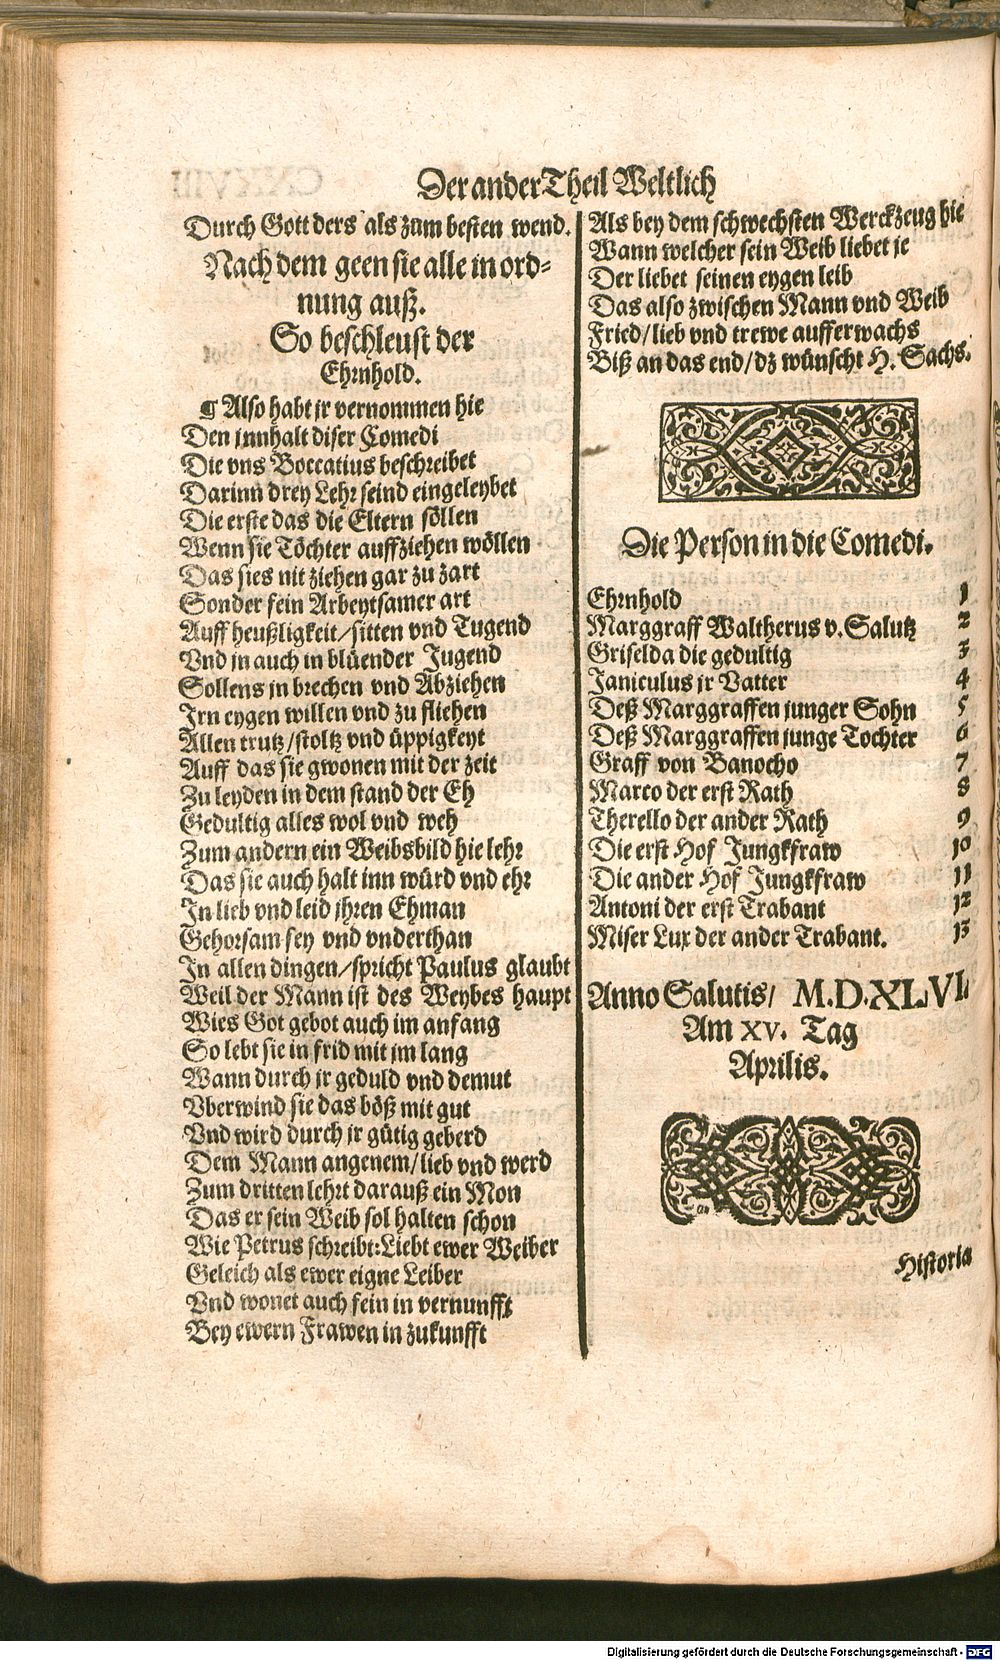 Der ander Theil Weltlich
Durch Gott ders als zum besten wend.
Nach dem geen sie alle in ord-
nung auß.
So beschleust der
Ehrnhold.
¶ Also habt jr vernommen hie
Den jnnhalt diser Comedi
Die vns Boccatius beschreibet
Darinn drey Lehr seind eingeleybet
Die erste das die Eltern söllen
Wenn sie Töchter auffziehen wöllen
Das sies nit ziehen gar zu zart
Sonder fein Arbeytsamer art
Auff heußligkeit/sitten vnd Tugend
Vnd jn auch in blüender Jugend
Sollens jn brechen vnd Abziehen
Irn eygen willen vnd zu fliehen
Allen trutz/stoltz vnd üppigkeyt
Auff das sie gwonen mit der zeit
Zu leyden in dem stand der Eh
Gedultig alles wol vnd weh
Zum andern ein Weibsbild hie lehr
Das sie auch halt inn würd vnd ehr
In lieb vnd leid jhren Ehman
Gehorsam sey vnd vnderthan
In allen dingen/spricht Paulus glaubt
Weil der Mann ist des Weybes haupt
Wies Got gebot auch im anfang
So lebt sie in frid mit jm lang
Wann durch jr geduld vnd demut
Vberwind sie das böß mit gut
Vnd wird durch jr gütig geberd
Dem Mann angenem/lieb vnd werd
Zum dritten lehrt darauß ein Mon
Das er sein Weib sol halten schon
Wie Petrus schreibt:Liebt ewer Weiber
Geleich als ewer eigne Leiber
Vnd wonet auch fein in vernunfft
Bey ewern Frawen in zukunfft
Als bey dem schwechsten Werckzeug hie
Wann welcher sein Weib liebet je
Der liebet seinen eygen leib
Das also zwischen Mann vnd Weib
Fried/lieb vnd trewe aufferwachs
Biß an das end/dz wünscht H. Sachs.
Die Person in die Comedi.
Ehrnhold 1
Marggraff Waltherus v. Salutz 2
Griselda die gedultig 3
Janiculus jr Vatter 4
Deß Marggraffen junger Sohn 5
Deß Marggraffen junge Tochter 6
Graff von Banocho 7
Marco der erst Rath 8
Therello der ander Rath 9
Die erst Hof Jungkfraw 10
Die ander Hof Jungkfraw 11
Antoni der erst Trabant 12
Miser Lux der ander Trabant. 13
Anno Salutis/ M.D.XLVI.
Am XV. Tag
Aprilis.
Historia
Digitalisierung gefördert durch die Deutsche Forschungsgemeinschaft - DFG